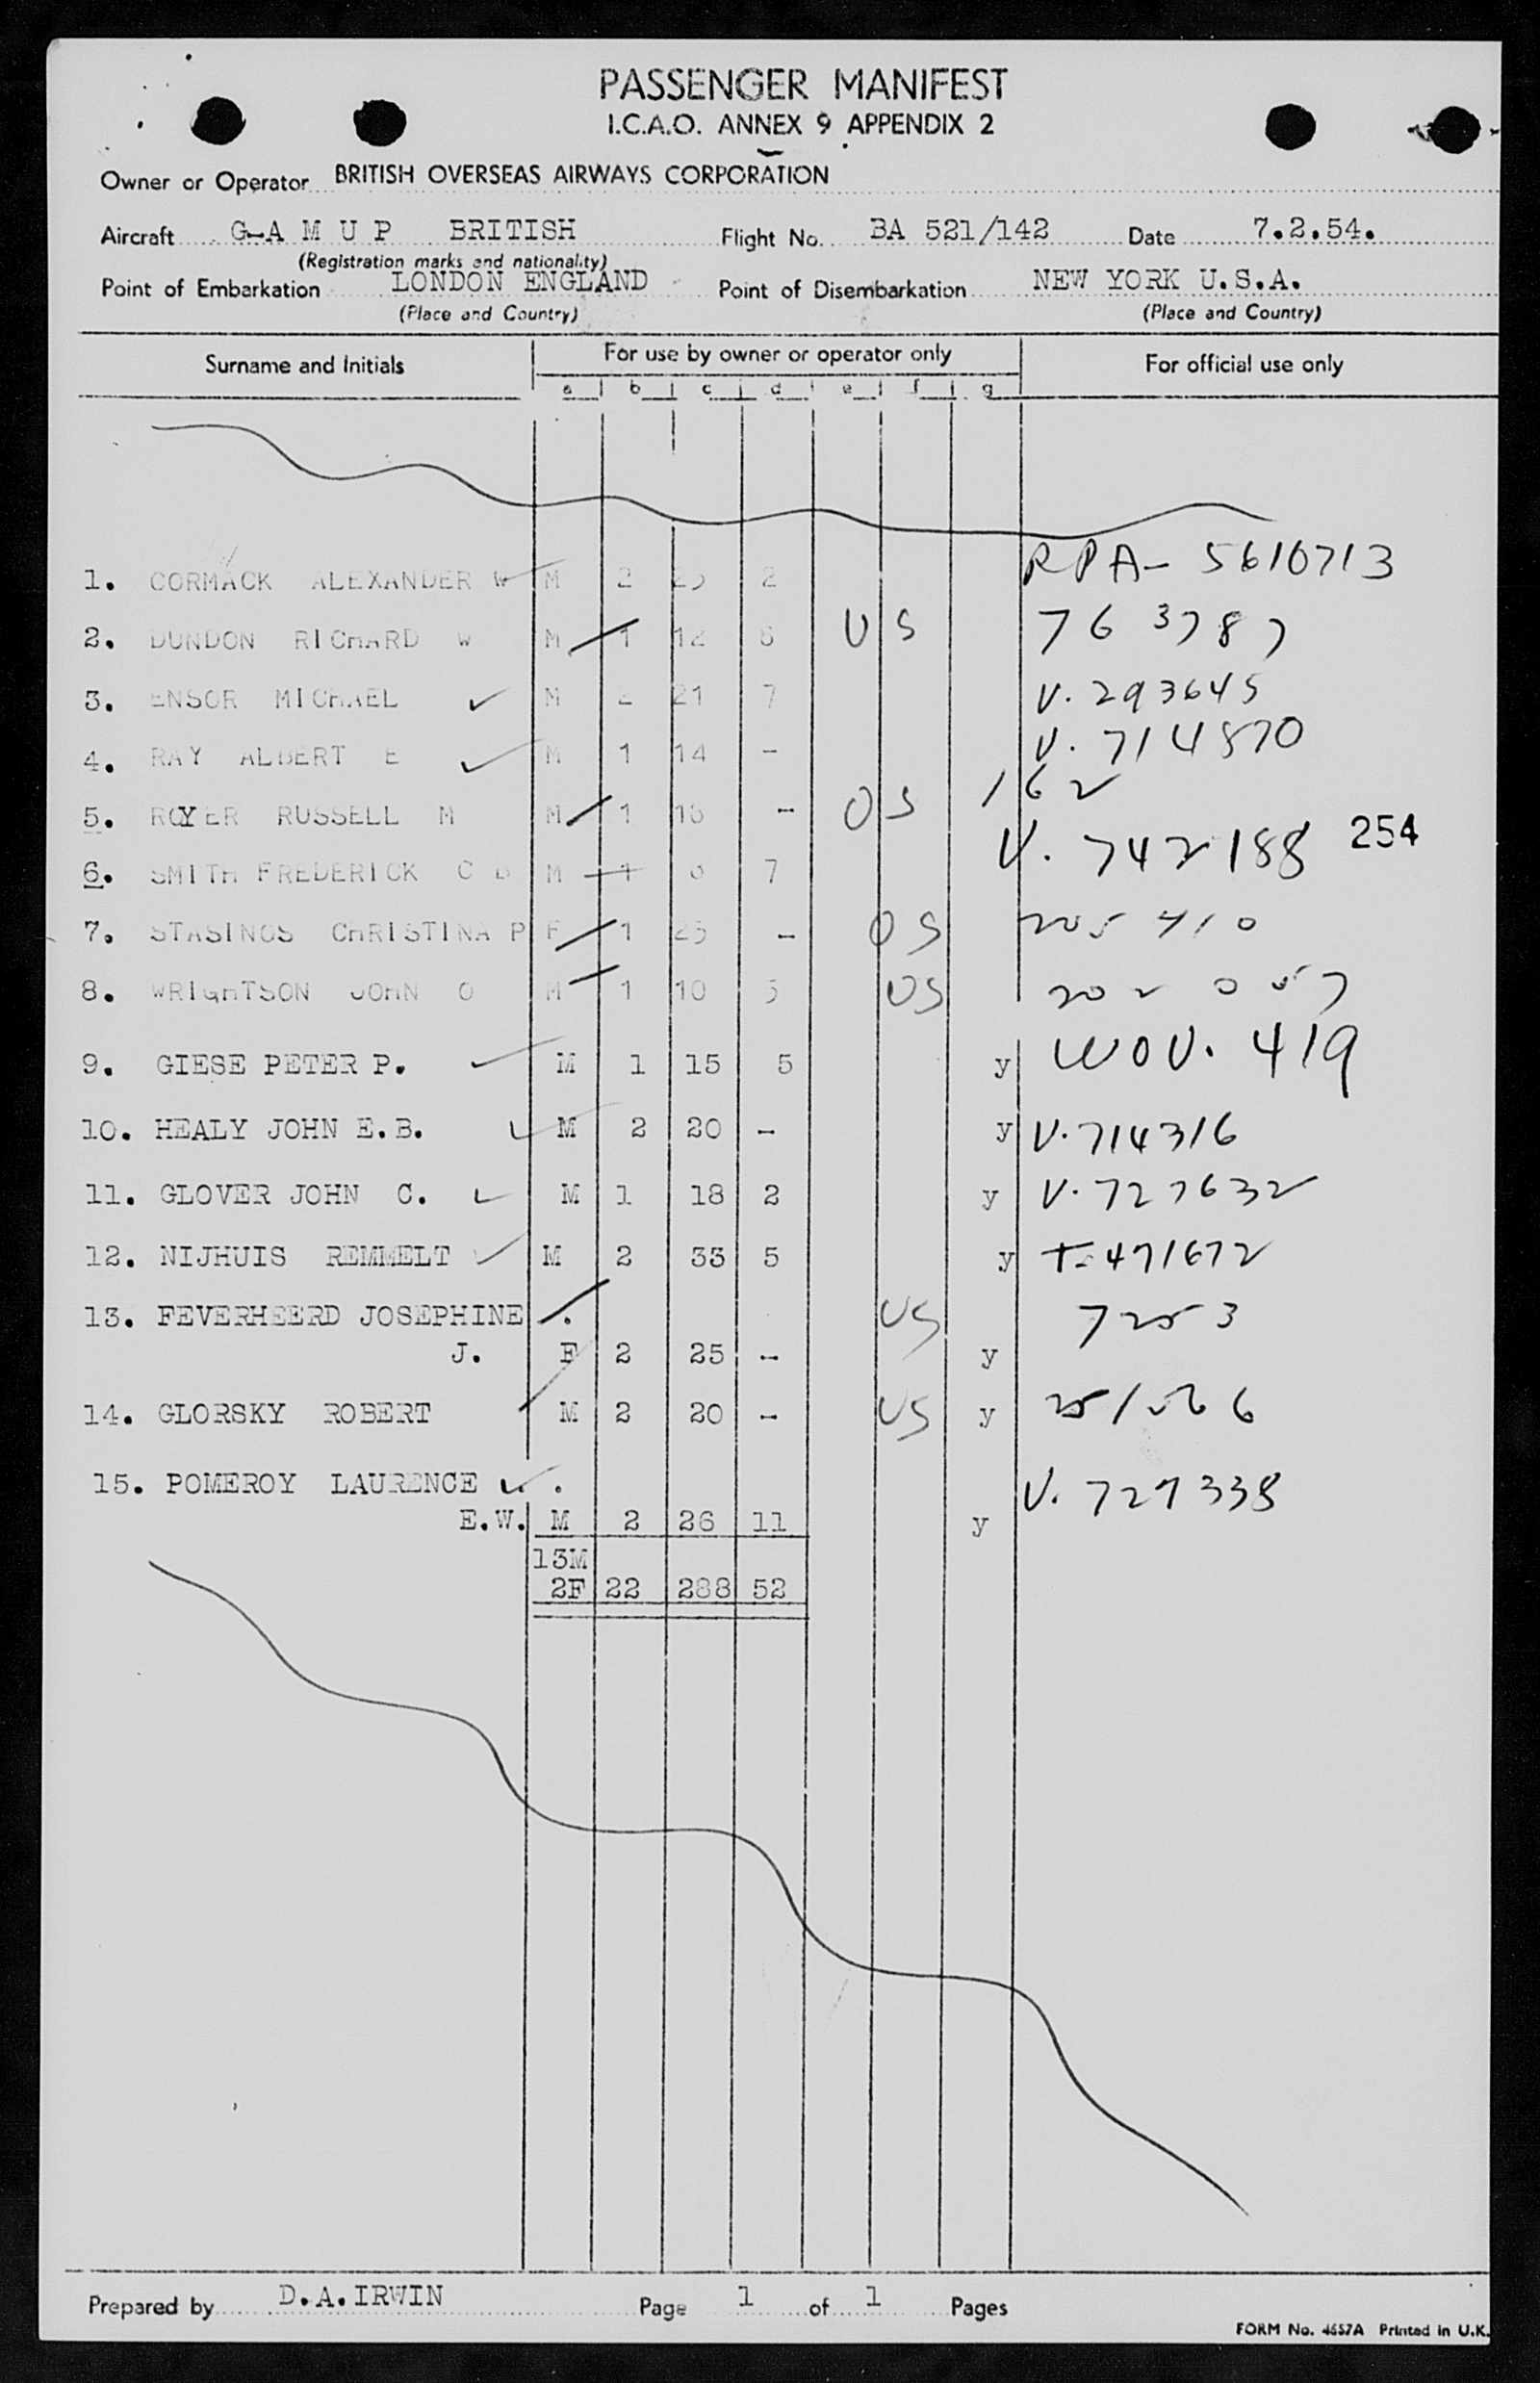 PASSENGER MANIFEST
I.C.A.O. ANNEX 9 APPENDIX 2
Owner or Operator BRITISH OVERSEAS AIRWAYS CORPORATION
Aircraft G-A M U P BRITISH Flight No. BA 521/142 Date 7.2.54.
(Registration marks and nationality)
Point of Embarkation LONDON ENGLAND Point of Disembarkation NEW YORK U.S.A.
(Place and Country) (Place and Country)
Surname and Initials For use by owner or operator only For official use only
a b c d e f g
1. CORMACK ALEXANDER W M 2 2 RPA- 5610713
2. DUNDON RICHARD W M 1 12 6 US 763787
3. ENSOR MICHAEL M 2 21 7 V. 293645
4. RAY ALBERT E M 1 14 - V. 714870
5. ROYER RUSSELL M M 1 - OS 162
6. SMITH FREDERICK C B M 1 7 V. 742188 254
7. STASINOS CHRISTINA P F 1 - OS 205410
8. WRIGHTSON JOHN O M 1 10 US
9. GIESE PETER P. M 1 15 5 y WOV. 419
10. HEALY JOHN E.B. M 2 20 - y V. 714316
11. GLOVER JOHN C. M 1 18 2 y V. 727632
12. NIJHUIS REMMELT M 2 33 5 y T-471672
13. FEVERHEERD JOSEPHINE . US 7253
J. F 2 25 - y
14. GLORSKY ROBERT M 2 20 - US y
15. POMEROY LAURENCE . V. 727338
E.W. M 2 26 11 y
13M
2F 22 288 52
Prepared by D.A.IRWIN Page 1 of 1 Pages
FORM No. 4657A Printed in U.K.